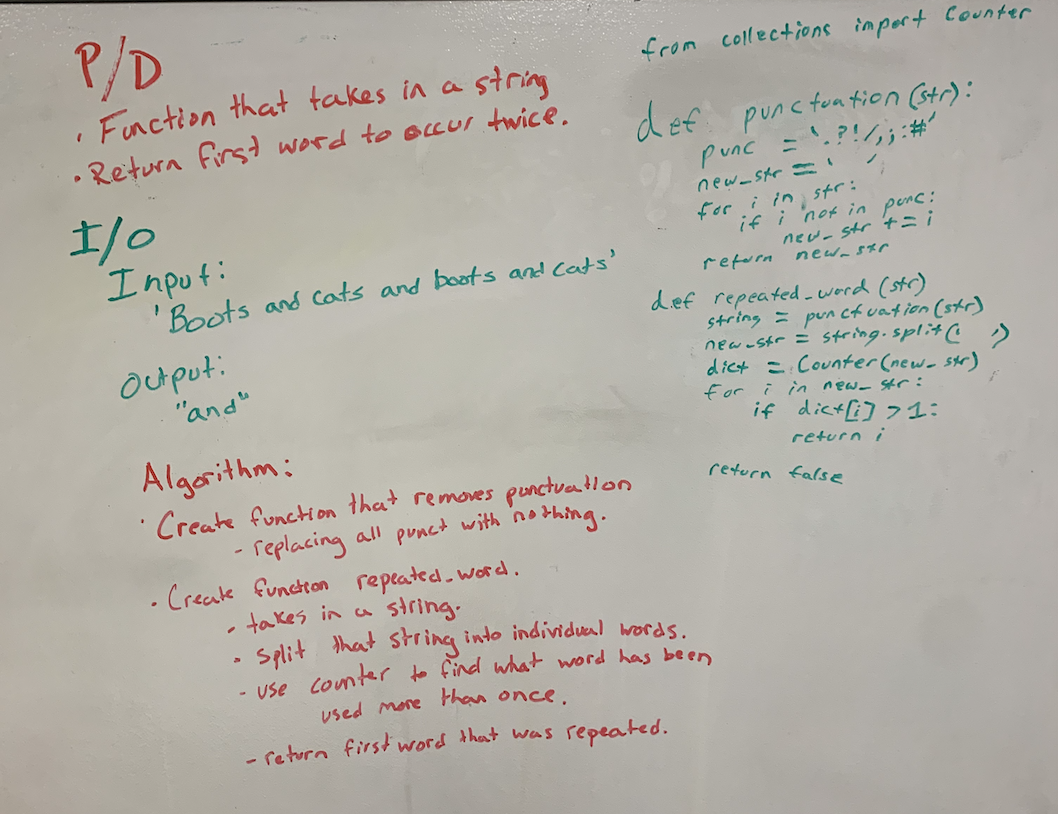 P/D
· Function that takes in a string
· Return first word to occur twice.
I/O
Input:
'Boots and cats and boots and cats'
Output:
"and"
Algorithm:
· Create function that removes punctuation
- replacing all punct with nothing.
· Create function repeated_word.
- takes in a string.
· Split that string into individual words.
- use counter to find what word has been
used more than once.
- return first word that was repeated.
from collections import Counter
def punctuation(str):
punc = '.?!/,;:#'
new_str = ' '
for i in str:
if i not in punc:
new_str += i
return new_str
def repeated_word(str)
string = punctuation(str)
new_str = string.split(' ')
dict = Counter(new_str)
for i in new_str:
if dict[i] > 1:
return i
return false